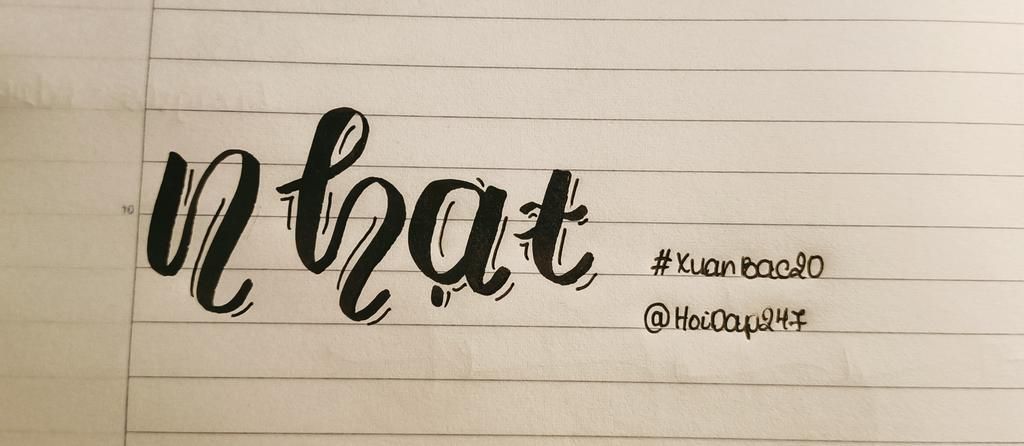 nhạt
#XuanBac20
@HoiDap247